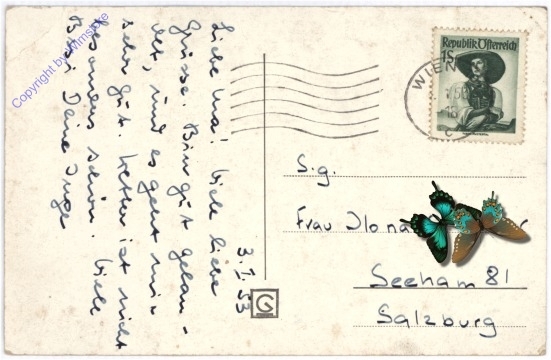 Liebe Ma! Viele liebe
Grüsse. Bin gut gelan-
det, und es geht mir
sehr gut. Wetter ist nicht
besonders schön. Viele
Bussi Deine Inge
3. I. 53
Republik Österreich
1S
WIEN
S.g.
Frau Ilona
Seeham 81
Salzburg
Copyright by Mimski